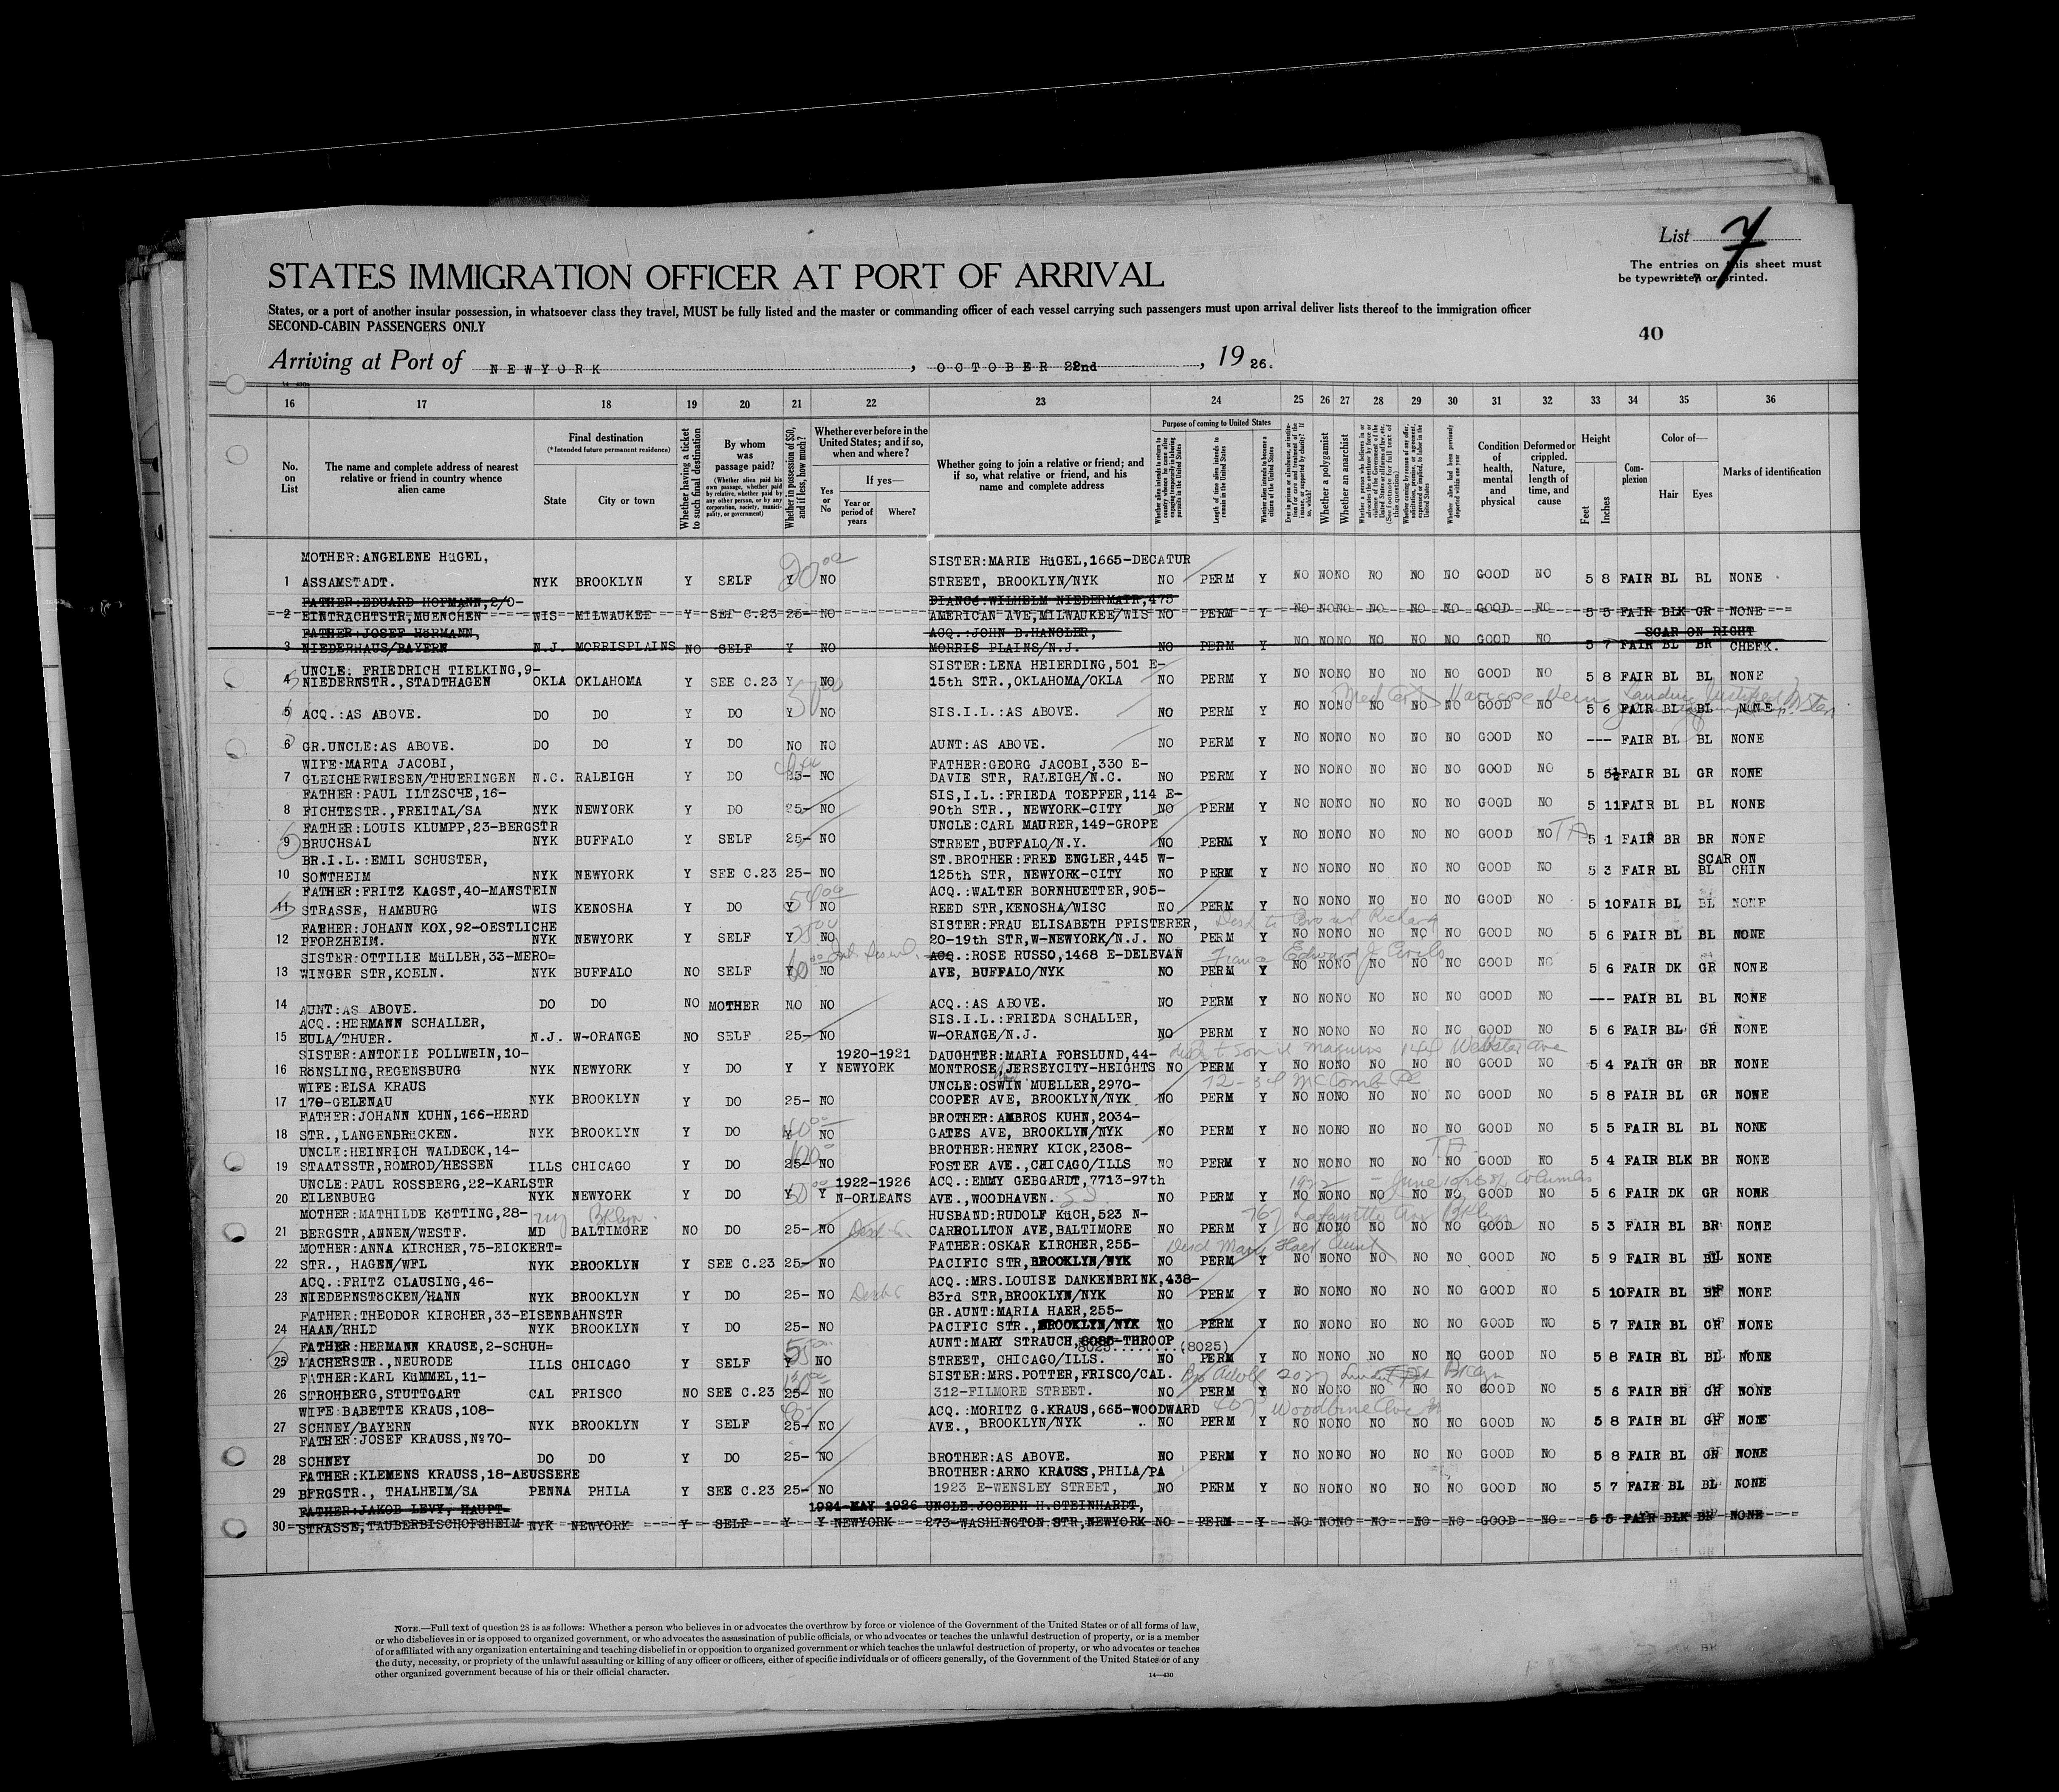 List 7
The entries on this sheet must
be typewritten or printed.
STATES IMMIGRATION OFFICER AT PORT OF ARRIVAL
States, or a port of another insular possession, in whatsoever class they travel, MUST be fully listed and the master or commanding officer of each vessel carrying such passengers must upon arrival deliver lists thereof to the immigration officer
SECOND-CABIN PASSENGERS ONLY
40
Arriving at Port of NEWYORK, OCTOBER 22nd, 1926.
16 17 18 19 20 21 22 23 24 25 26 27 28 29 30 31 32 33 34 35 36
No. on List
The name and complete address of nearest relative or friend in country whence alien came
Final destination
(*Intended future permanent residence)
State City or town
Whether having a ticket to such final destination
By whom was passage paid?
(Whether alien paid his own passage, whether paid by relative, whether paid by any other person, or by any corporation, society, municipality, or government)
Whether in possession of $50, and if less, how much?
Whether ever before in the United States; and if so, when and where?
Yes or No
If yes—
Year or period of years Where?
Whether going to join a relative or friend; and if so, what relative or friend, and his name and complete address
Purpose of coming to United States
Length of time alien intends to remain in the United States
Whether alien intends to become a citizen of the United States
Whether a polygamist
Whether an anarchist
Condition of health, mental and physical
Deformed or crippled. Nature, length of time, and cause
Height
Feet Inches
Complexion
Color of—
Hair Eyes
Marks of identification
MOTHER:ANGELENE HüGEL, SISTER:MARIE HüGEL,1665-DECATUR
1 ASSAMSTADT. NYK BROOKLYN Y SELF Y NO STREET, BROOKLYN/NYK NO PERM Y NO NO NO NO NO NO GOOD NO 5 8 FAIR BL BL NONE
FATHER:EDUARD HOFMANN,2/0- WILHELM NIEDERMAYR,473
2 EINTRACHTSTR,MUENCHEN WIS MILWAUKEE Y SEE C.23 25- NO AMERICAN AVE,MILWAUKEE/WIS NO PERM Y NO NO NO NO NO NO GOOD NO 5 5 FAIR BLK GR NONE
FATHER:JOSEF HöRMANN, ACQ.:JOHN D.HANSLER, SCAR ON RIGHT
3 NIEDERHAUS/BAYERN N.J. MORRISPLAINS NO SELF Y NO MORRIS PLAINS/N.J. NO PERM Y NO NO NO NO NO NO GOOD NO 5 7 FAIR BL BR CHEEK.
UNCLE: FRIEDRICH TIELKING,9- SISTER:LENA HEIERDING,501 E-
4 NIEDERNSTR.,STADTHAGEN OKLA OKLAHOMA Y SEE C.23 Y NO 15th STR.,OKLAHOMA/OKLA NO PERM Y NO NO NO NO NO NO GOOD NO 5 8 FAIR BL BL NONE
5 ACQ.:AS ABOVE. DO DO Y DO Y NO SIS.I.L.:AS ABOVE. NO PERM Y NO NO NO NO NO NO GOOD NO 5 6 FAIR BL BL NONE
6 GR.UNCLE:AS ABOVE. DO DO Y DO NO NO AUNT:AS ABOVE. NO PERM Y NO NO NO NO NO NO GOOD NO --- FAIR BL BL NONE
WIFE:MARTA JACOBI, FATHER:GEORG JACOBI,330 E-
7 GLEICHERWIESEN/THUERINGEN N.C. RALEIGH Y DO 25- NO DAVIE STR, RALEIGH/N.C. NO PERM Y NO NO NO NO NO NO GOOD NO 5 5½ FAIR BL GR NONE
FATHER:PAUL ILTZSCHE,16- SIS,I.L.:FRIEDA TOEPFER,114 E-
8 FICHTESTR.,FREITAL/SA NYK NEWYORK Y DO 25- NO 90th STR., NEWYORK-CITY NO PERM Y NO NO NO NO NO NO GOOD NO 5 11 FAIR BL BL NONE
FATHER:LOUIS KLUMPP,23-BERGSTR UNCLE:CARL MAURER,149-GROPE
9 BRUCHSAL NYK BUFFALO Y SELF 25- NO STREET,BUFFALO/N.Y. NO PERM Y NO NO NO NO NO NO GOOD NO 5 1 FAIR BR BR NONE
BR.I.L.:EMIL SCHUSTER, ST.BROTHER:FRED ENGLER,445 W- SCAR ON
10 SONTHEIM NYK NEWYORK Y SEE C.23 25- NO 125th STR, NEWYORK-CITY NO PERM Y NO NO NO NO NO NO GOOD NO 5 3 FAIR BL BL CHIN
FATHER:FRITZ KAGST,40-MANSTEIN ACQ.:WALTER BORNHUETTER,905-
11 STRASSE, HAMBURG WIS KENOSHA Y DO Y NO REED STR,KENOSHA/WISC NO PERM Y NO NO NO NO NO NO GOOD NO 5 10 FAIR BL BL NONE
FATHER:JOHANN KOX,92-OESTLICHE SISTER:FRAU ELISABETH PFISTERER,
12 PFORZHEIM. NYK NEWYORK Y SELF Y NO 20-19th STR,W-NEWYORK/N.J. NO PERM Y NO NO NO NO NO NO GOOD NO 5 6 FAIR BL BL NONE
SISTER:OTTILIE MüLLER,33-MERO= ACQ.:ROSE RUSSO,1468 E-DELEVAN
13 WINGER STR,KOELN. NYK BUFFALO NO SELF Y NO AVE, BUFFALO/NYK NO PERM Y NO NO NO NO NO NO GOOD NO 5 6 FAIR DK GR NONE
14 AUNT:AS ABOVE. DO DO NO MOTHER NO NO ACQ.:AS ABOVE. NO PERM Y NO NO NO NO NO NO GOOD NO --- FAIR BL BL NONE
ACQ.:HERMANN SCHALLER, SIS.I.L.:FRIEDA SCHALLER,
15 EULA/THUER. N.J. W-ORANGE NO SELF 25- NO W-ORANGE/N.J. NO PERM Y NO NO NO NO NO NO GOOD NO 5 6 FAIR BL GR NONE
SISTER:ANTONIE POLLWEIN,10- 1920-1921 DAUGHTER:MARIA FORSLUND,44-
16 RöNSLING,REGENSBURG NYK NEWYORK Y DO Y Y NEWYORK MONTROSE/JERSEYCITY-HEIGHTS NO PERM Y NO NO NO NO NO NO GOOD NO 5 4 FAIR GR BR NONE
WIFE:ELSA KRAUS UNCLE:OSWIN MUELLER,2970-
17 170-GELENAU NYK BROOKLYN Y DO 25- NO COOPER AVE, BROOKLYN/NYK NO PERM Y NO NO NO NO NO NO GOOD NO 5 8 FAIR BL GR NONE
FATHER:JOHANN KUHN,166-HERD BROTHER:AMBROS KUHN,2034-
18 STR.,LANGENBRüCKEN. NYK BROOKLYN Y DO Y NO GATES AVE, BROOKLYN/NYK NO PERM Y NO NO NO NO NO NO GOOD NO 5 5 FAIR BL BL NONE
UNCLE:HEINRICH WALDECK,14- BROTHER:HENRY KICK,2308-
19 STAATSSTR,ROMROD/HESSEN ILLS CHICAGO Y DO 25- NO FOSTER AVE.,CHICAGO/ILLS NO PERM Y NO NO NO NO NO NO GOOD NO 5 4 FAIR BLK BR NONE
UNCLE:PAUL ROSSBERG,22-KARLSTR 1922-1926 ACQ.:EMMY GEBGARDT,7713-97th
20 EILENBURG NYK NEWYORK Y DO Y Y N-ORLEANS AVE.,WOODHAVEN. NO PERM Y NO NO NO NO NO NO GOOD NO 5 6 FAIR DK GR NONE
MOTHER:MATHILDE KöTTING,28- HUSBAND:RUDOLF KüCH,523 N- 767 Lafayette Ave Bklyn
21 BERGSTR,ANNEN/WESTF. MD BALTIMORE NO DO 25- NO CARROLLTON AVE,BALTIMORE NO PERM Y NO NO NO NO NO NO GOOD NO 5 3 FAIR BL BR NONE
MOTHER:ANNA KIRCHER,75-EICKERT= FATHER:OSKAR KIRCHER,255-
22 STR., HAGEN/WFL NYK BROOKLYN Y SEE C.23 25- NO PACIFIC STR,BROOKLYN/NYK NO PERM Y NO NO NO NO NO NO GOOD NO 5 9 FAIR BL BL NONE
ACQ.:FRITZ CLAUSING,46- ACQ.:MRS.LOUISE DANKENBRINK,438-
23 NIEDERNSTöCKEN/HANN NYK BROOKLYN Y DO 25- NO 83rd STR,BROOKLYN/NYK NO PERM Y NO NO NO NO NO NO GOOD NO 5 10 FAIR BL NONE
FATHER:THEODOR KIRCHER,33-EISENBAHNSTR GR.AUNT:MARIA HAER,255-
24 HAAN/RHLD NYK BROOKLYN Y DO 25- NO PACIFIC STR.,BROOKLYN/NYK NO PERM Y NO NO NO NO NO NO GOOD NO 5 7 FAIR BL GR NONE
FATHER:HERMANN KRAUSE,2-SCHUH= AUNT:MARY STRAUCH,8085-THROOP
8025........(8025)
25 MACHERSTR.,NEURODE ILLS CHICAGO Y SELF Y NO STREET, CHICAGO/ILLS. NO PERM Y NO NO NO NO NO NO GOOD NO 5 8 FAIR BL BL NONE
FATHER:KARL KüMMEL,11- SISTER:MRS.POTTER,FRISCO/CAL.
26 STROHBERG,STUTTGART CAL FRISCO NO SEE C.23 25- NO 312-FILMORE STREET. NO PERM Y NO NO NO NO NO NO GOOD NO 5 6 FAIR BR GR NONE
WIFE:BABETTE KRAUS,108- ACQ.:MORITZ G.KRAUS,665-WOODWARD
27 SCHNEY/BAYERN NYK BROOKLYN Y SELF 25- NO AVE., BROOKLYN/NYK NO PERM Y NO NO NO NO NO NO GOOD NO 5 8 FAIR BL GR NONE
FATHER:JOSEF KRAUSS,No70-
28 SCHNEY DO DO Y DO 25- NO BROTHER:AS ABOVE. NO PERM Y NO NO NO NO NO NO GOOD NO 5 8 FAIR BL GR NONE
FATHER:KLEMENS KRAUSS,18-AEUSSERE BROTHER:ARNO KRAUSS,PHILA/PA
29 BERGSTR., THALHEIM/SA PENNA PHILA Y SEE C.23 25- NO 1923 E-WENSLEY STREET, NO PERM Y NO NO NO NO NO NO GOOD NO 5 7 FAIR BL BL NONE
FATHER:JAKOB LEVY, HAUPT- 1924-MAY 1926 UNCLE:JOSEPH H.STEINHARDT,
30 STRASSE,TAUBERBISCHOFSHEIM NYK NEWYORK Y SELF Y Y NEWYORK 273-WASHINGTON STR,NEWYORK NO PERM Y NO NO NO NO NO NO GOOD NO 5 5 FAIR BLK BR NONE
NOTE.—Full text of question 28 is as follows: Whether a person who believes in or advocates the overthrow by force or violence of the Government of the United States or of all forms of law,
or who disbelieves in or is opposed to organized government, or who advocates the assassination of public officials, or who advocates or teaches the unlawful destruction of property, or is a member
of or affiliated with any organization entertaining and teaching disbelief in or opposition to organized government or which teaches the unlawful destruction of property, or who advocates or teaches
the duty, necessity, or propriety of the unlawful assaulting or killing of any officer or officers, either of specific individuals or of officers generally, of the Government of the United States or of any
other organized government because of his or their official character.
14—430